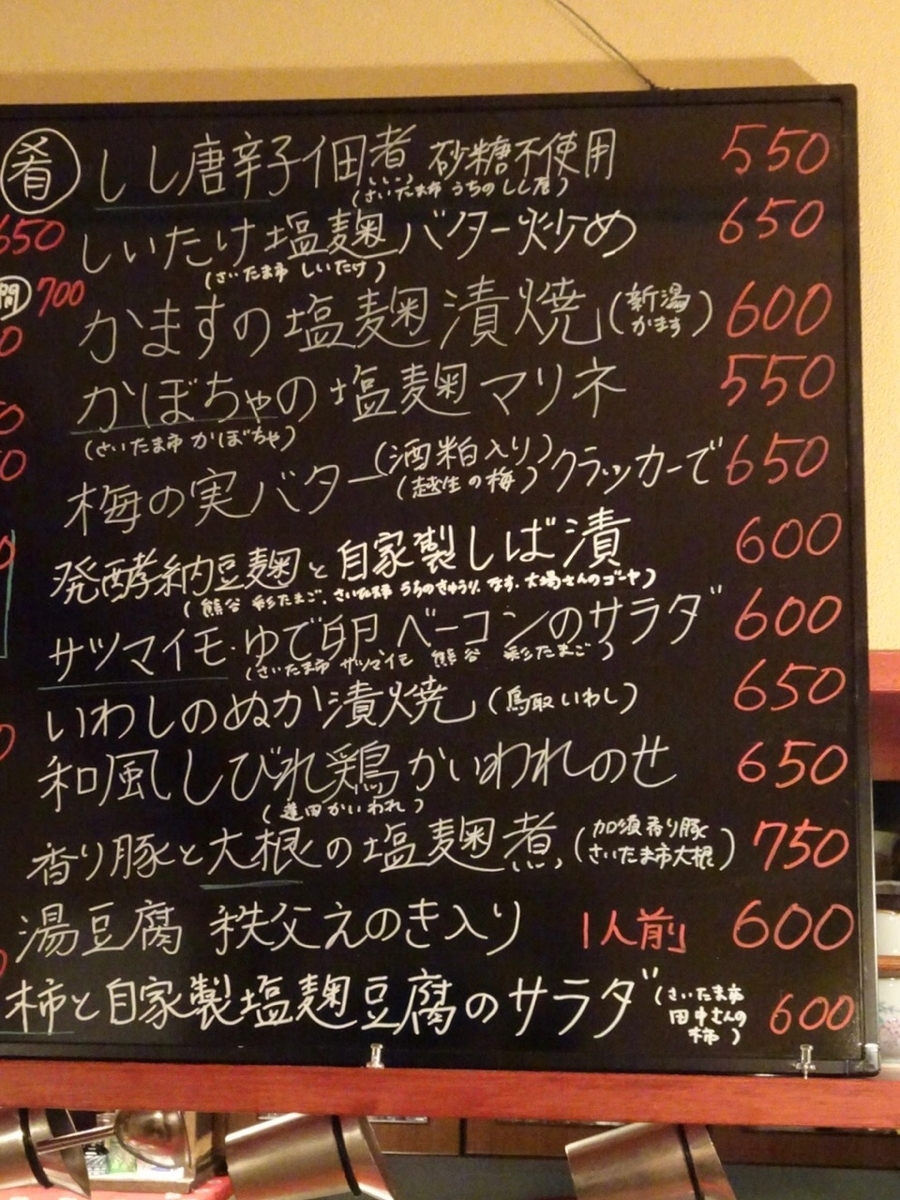 肴 しし唐辛子佃煮 砂糖不使用 550
650 しいたけ塩麹バター炒め 650
(さいたま市 しいたけ)
700 かますの塩麹漬焼 (新潟 かます) 600
かぼちゃの塩麹マリネ 550
(さいたま市 かぼちゃ)
梅の実バター (酒粕入り) (越生の梅) クラッカーで 650
発酵納豆麹と自家製しば漬 600
(熊谷 彩たまご、さいたま市 うちのきゅうり、なす、大場さんのゴーヤ)
サツマイモ・ゆで卵 ベーコンのサラダ 600
(さいたま市 サツマイモ 熊谷 彩たまご)
いわしのぬか漬焼 (鳥取いわし) 650
和風しびれ鶏かいわれのせ 650
(蓮田かいわれ)
香り豚と大根の塩麹煮 (加須香り豚 さいたま市大根) 750
湯豆腐 秩父えのき入り 1人前 600
柿と自家製塩麹豆腐のサラダ (さいたま市 田中さんの 柿) 600